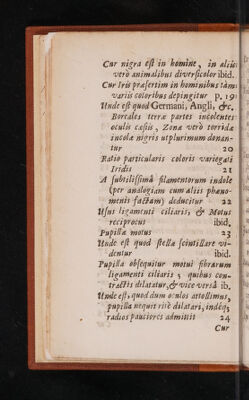 Cur nigra est in homine, in aliis
verò animalibus diversicolor ibid.
Cur Iris præsertim in hominibus tàm
variis coloribus depingitur p. 19
Unde est quod Germani, Angli, &c.
Boreales terræ partes incolentes
oculis cæsiis, Zonæ verò torridæ
incolæ nigris utplurimum donan-
tur 20
Ratio particularis coloris variegati
Iridis 21
A subtilissimâ filamentorum indole
(per analogiam cum aliis phæno-
menis factam) deducitur 22
Usus ligamenti ciliaris, & Motus
reciprocus ibid.
Pupillæ motus 23
Unde est quod stellæ scintillare vi-
dentur ibid.
Pupilla obsequitur motui fibrarum
ligamenti ciliaris, quibus con-
tractis dilatatur, & vice versâ ib.
Unde est, quod dum oculos attollimus,
pupilla nequit ritè dilatari, indéq;
radios pauciores admittit 24
Cur